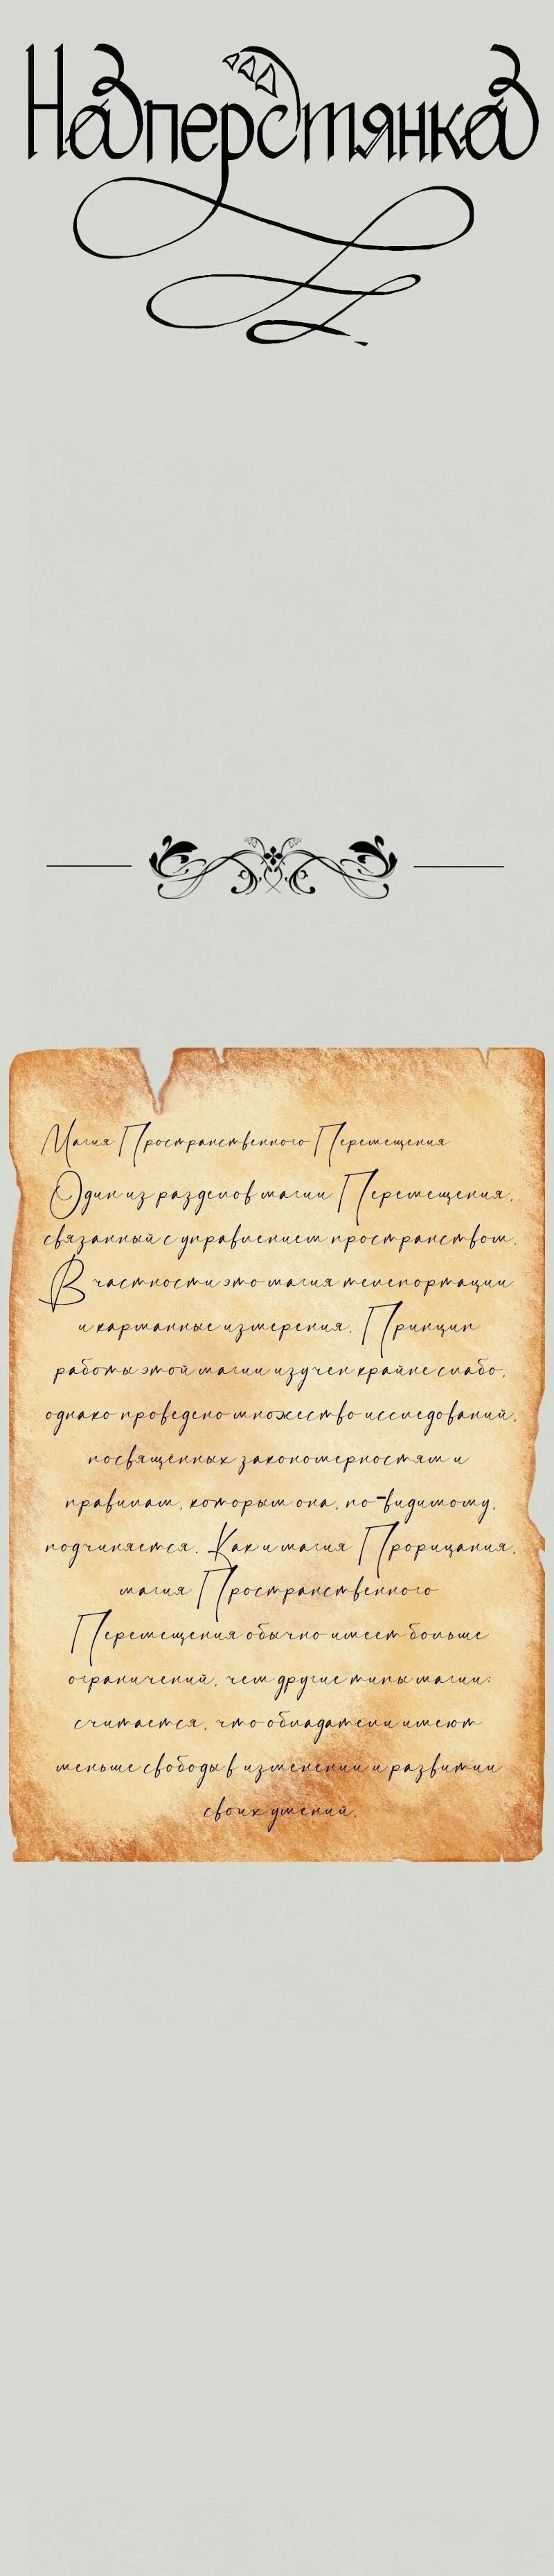 Наперстянка
Магия Пространственного Перемещения
Один из разделов магии Перемещения,
связанный с управлением пространством.
В частности это магия телепортации
и карманные измерения. Принцип
работы этой магии изучен крайне слабо,
однако проведено множество исследований,
посвященных закономерностям и
правилам, которым она, по-видимому,
подчиняется. Как и магия Прорицания,
магия Пространственного
Перемещения обычно имеет больше
ограничений, чем другие типы магии:
считается, что обладатели имеют
меньше свободы в изменении и развитии
своих умений.